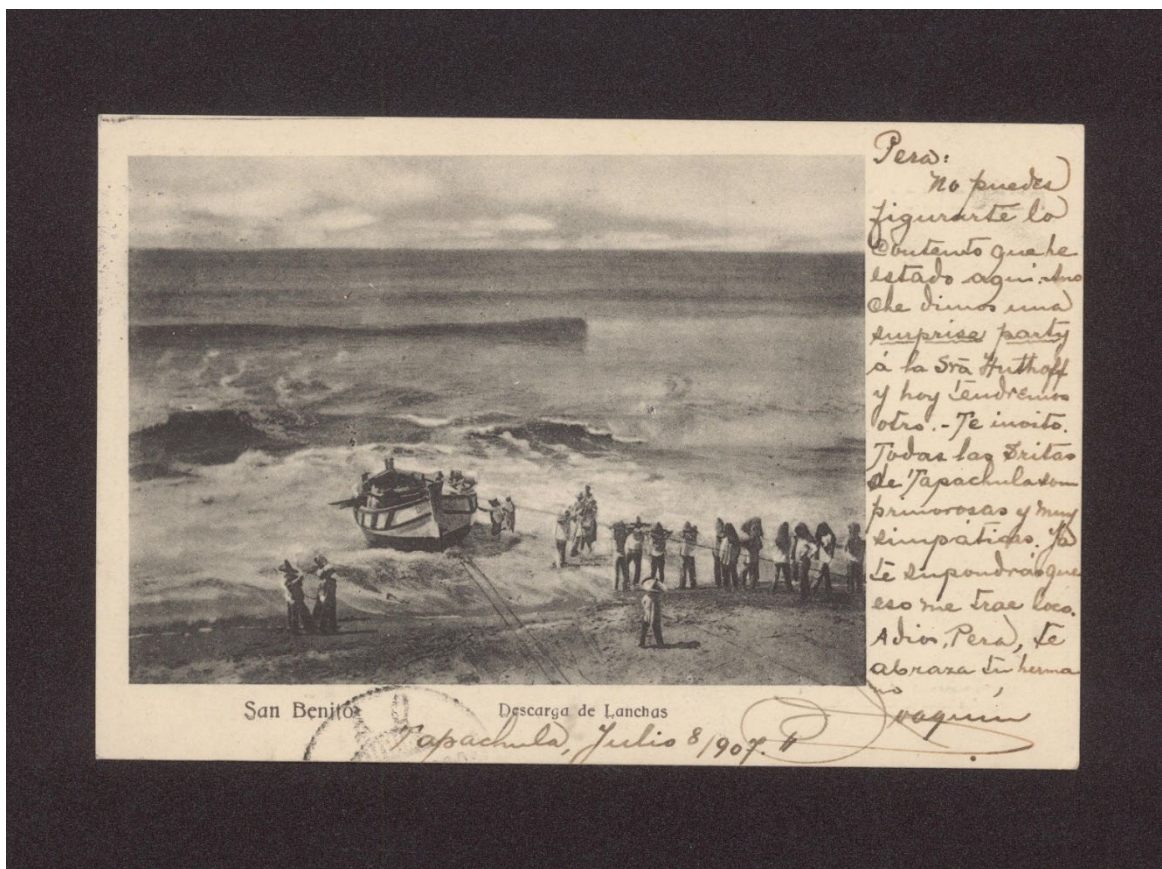 Pera:
No puedes
figurarte lo
contento que he
estado aqui. Ano
che dimos una
surprise party
á la Sra Huthoff
y hoy tendremos
otro. - Te invito.
Todas las Sritas
de Tapachula son
primorosas y muy
simpáticas. Ya
te supondrás que
eso me trae loco.
Adios, Pera, te
abraza tu herma
no
Joaquin
San Benito
Descarga de Lanchas
Tapachula, Julio 8/907.